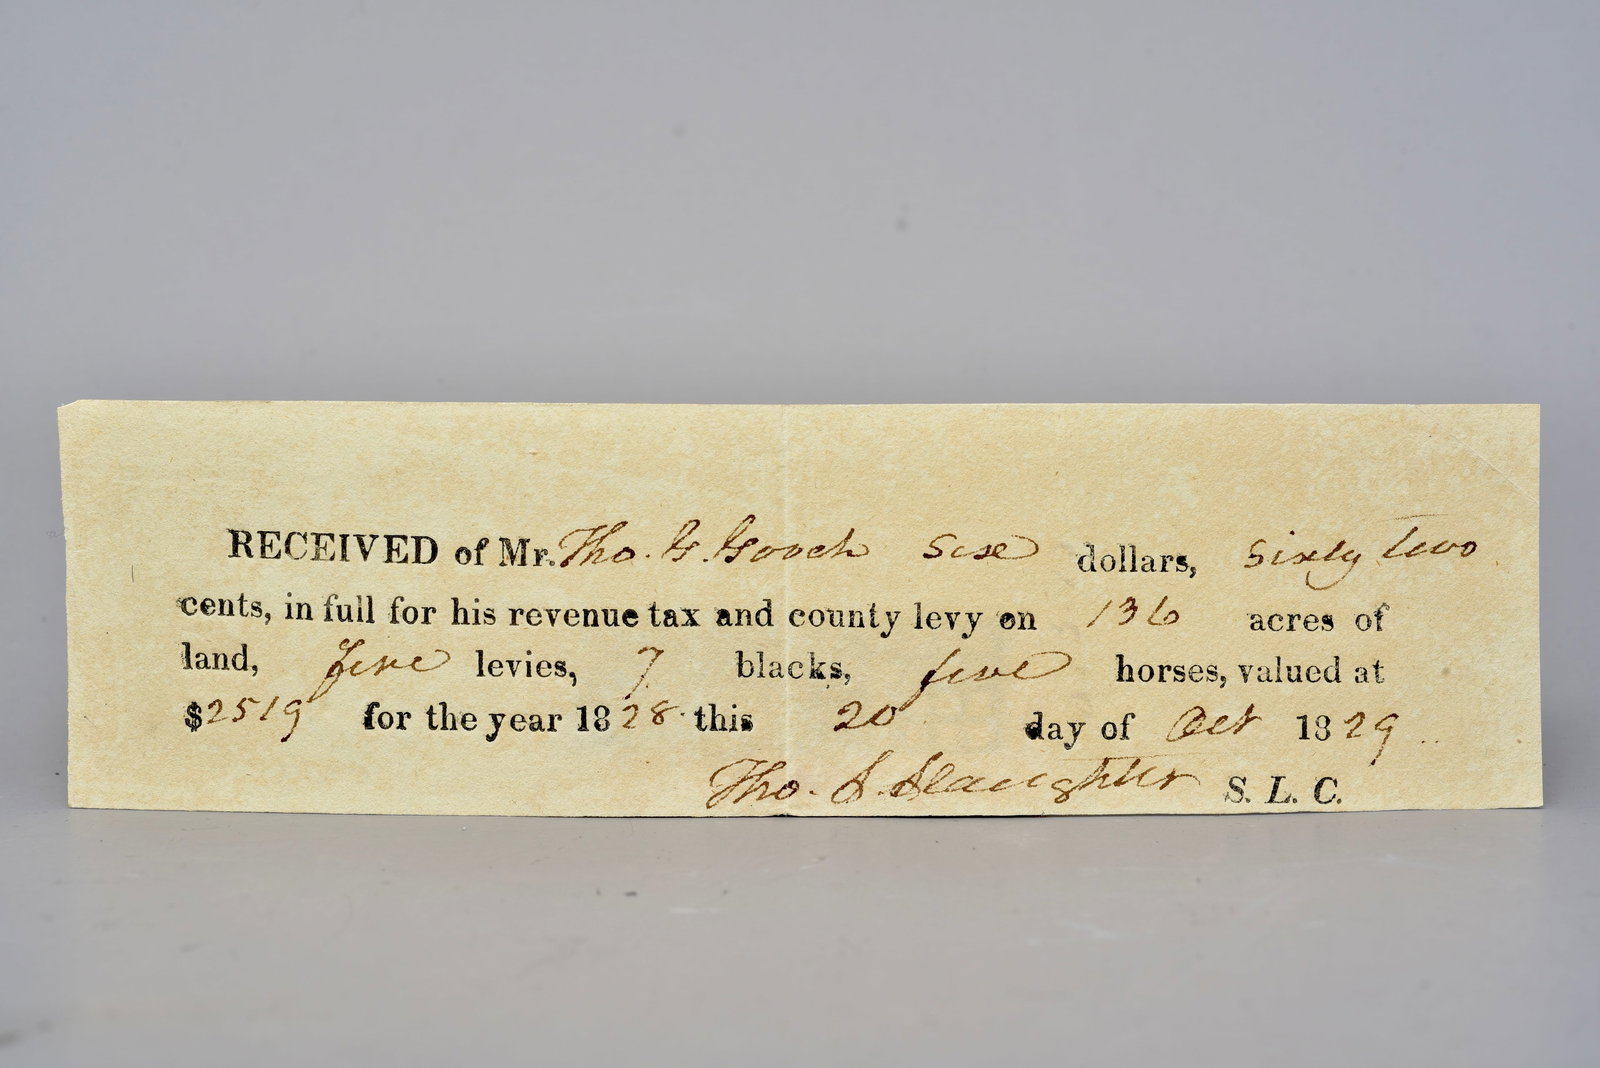 RECEIVED of Mr. Tho. G. Gooch six dollars, sixty two
cents, in full for his revenue tax and county levy on 136 acres of
land, five levies, 7 blacks, five horses, valued at
$2519 for the year 1828 this 20 day of Oct 1829
Tho. S. Slaughter S. L. C.